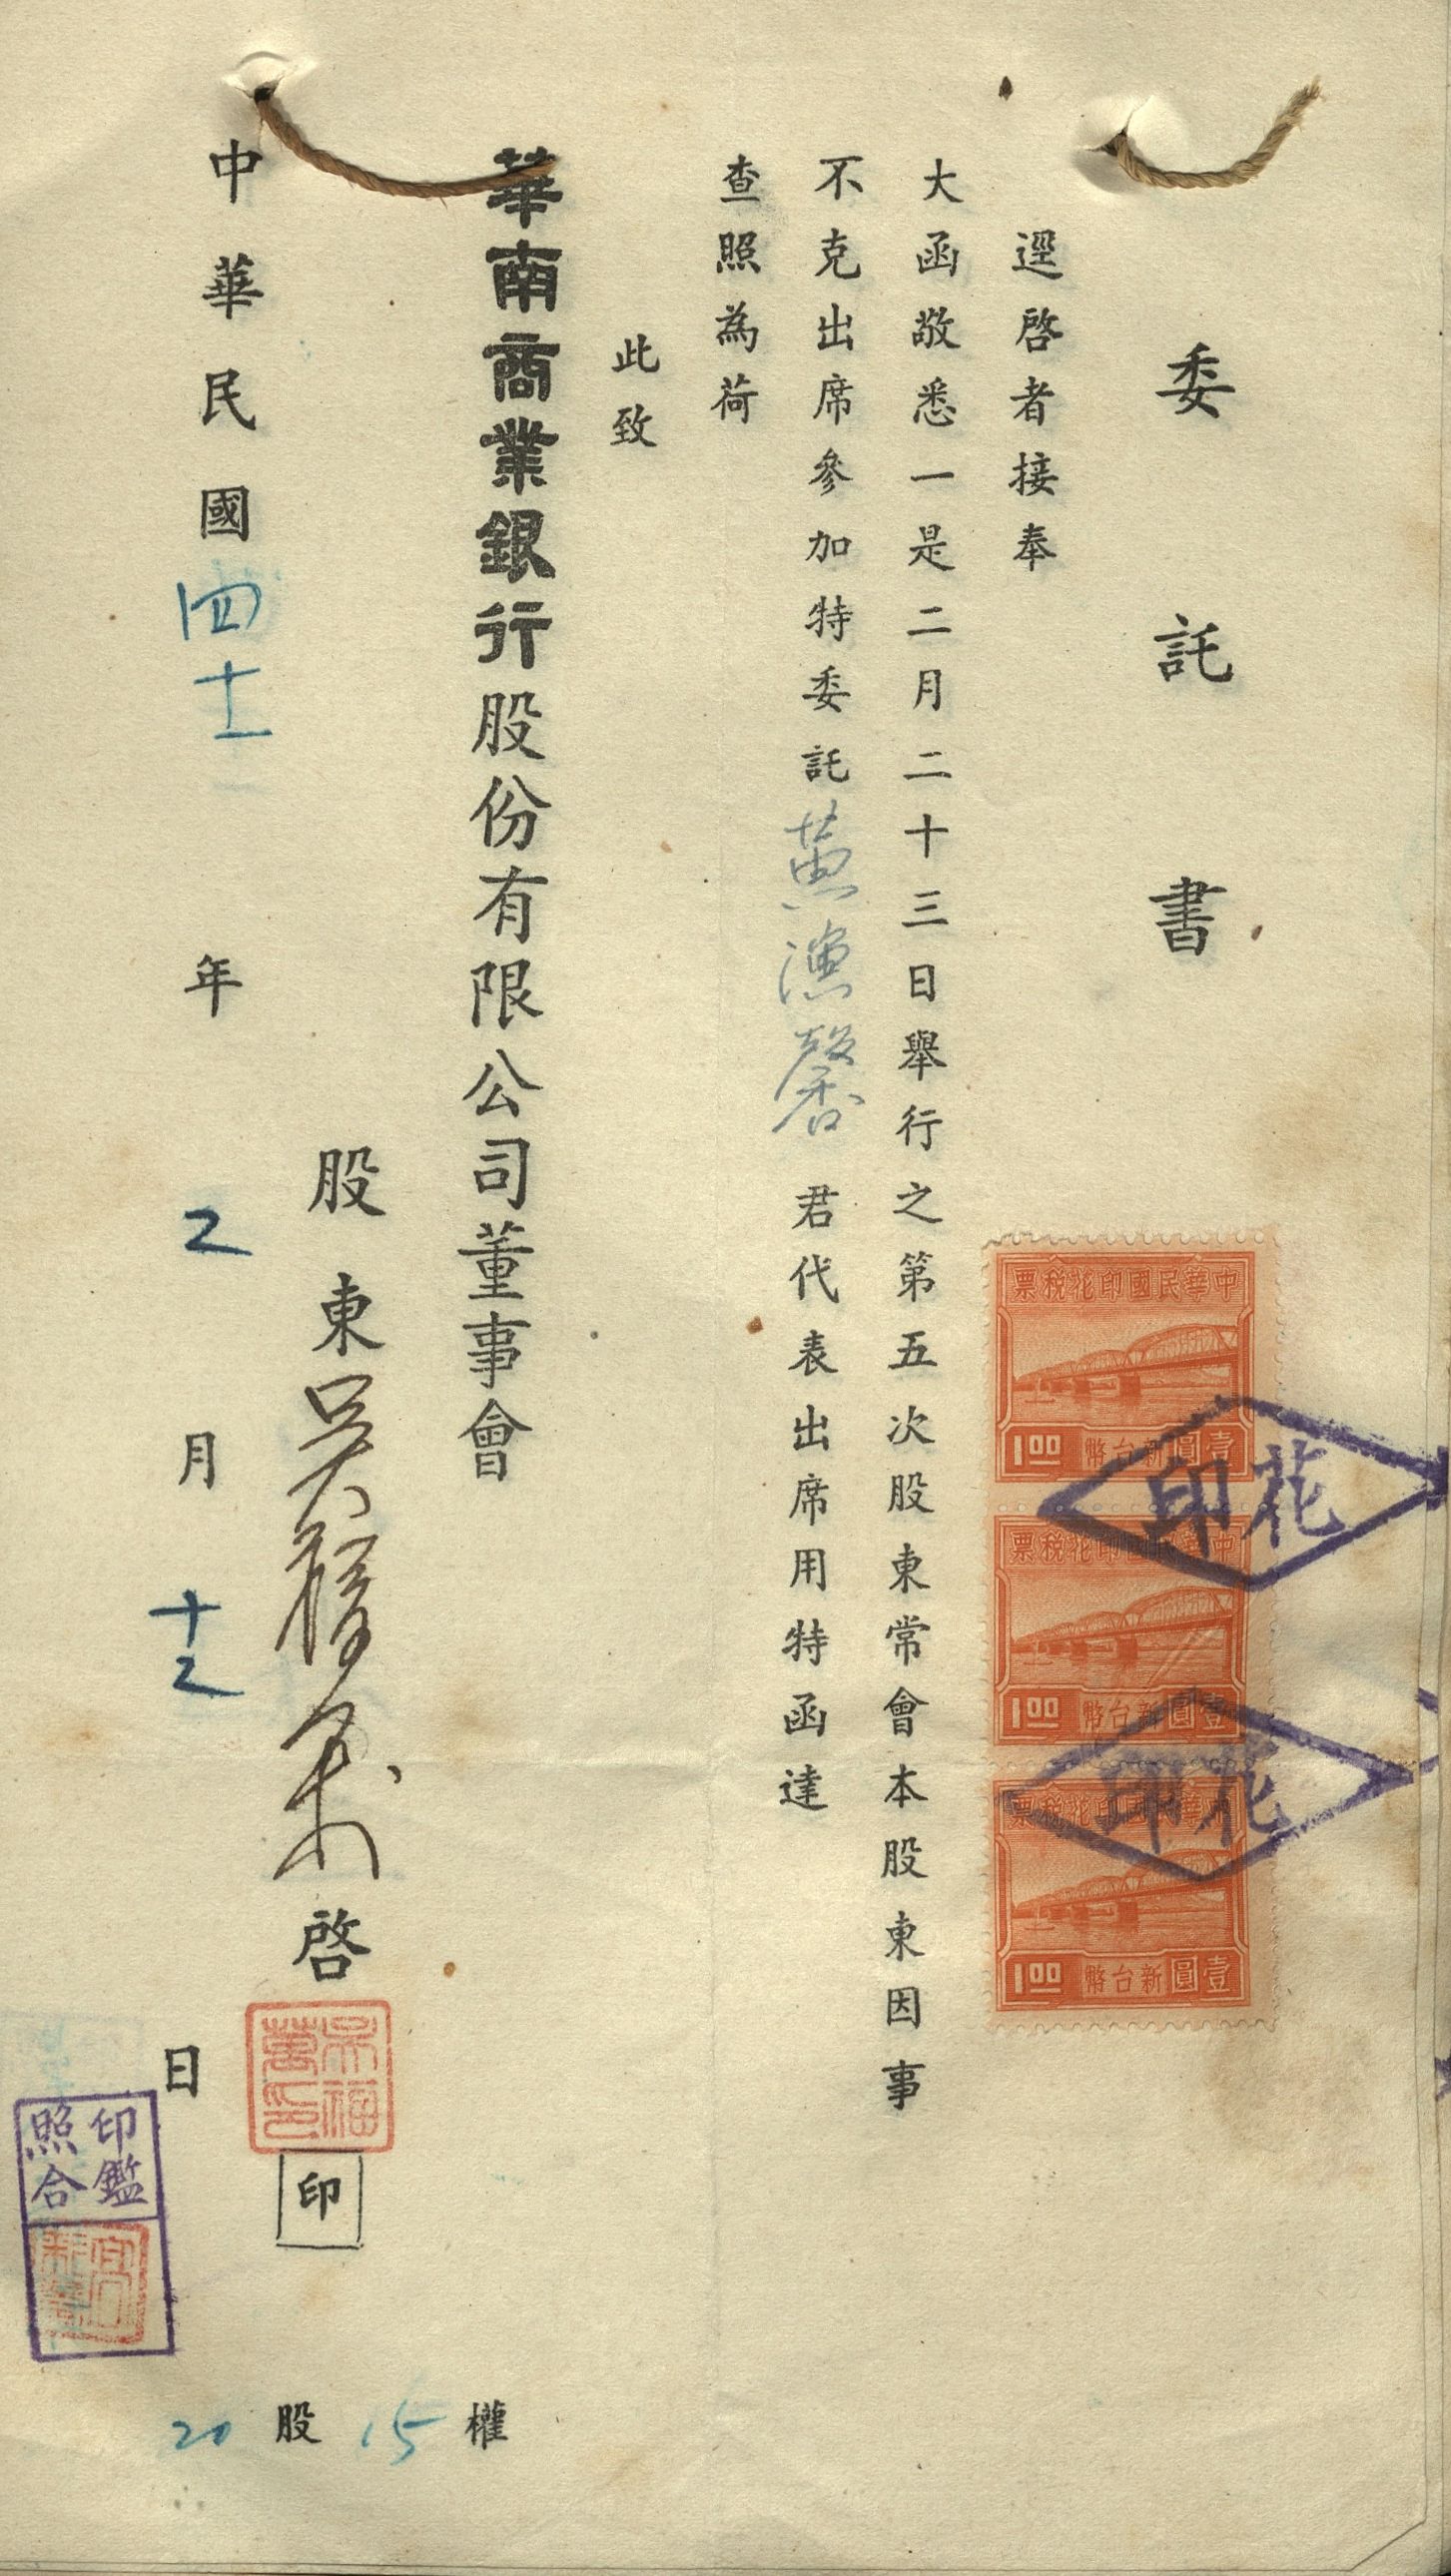 委託書
逕啓者接奉
大函敬悉一是二月二十三日舉行之第五次股東常會本股東因事
不克出席參加特委託黃馨君代表出席用特函達
查照為荷
此致
華南商業銀行股份有限公司董事會
股東吳福萬啓
吳福萬印
印
中華民國四十一年二月十二日
20股15權
中華民國印花稅票
1.00 新台幣壹圓
中華民國印花稅票
1.00 新台幣壹圓
中華民國印花稅票
1.00 新台幣壹圓
印花
印花
印鑑
照合